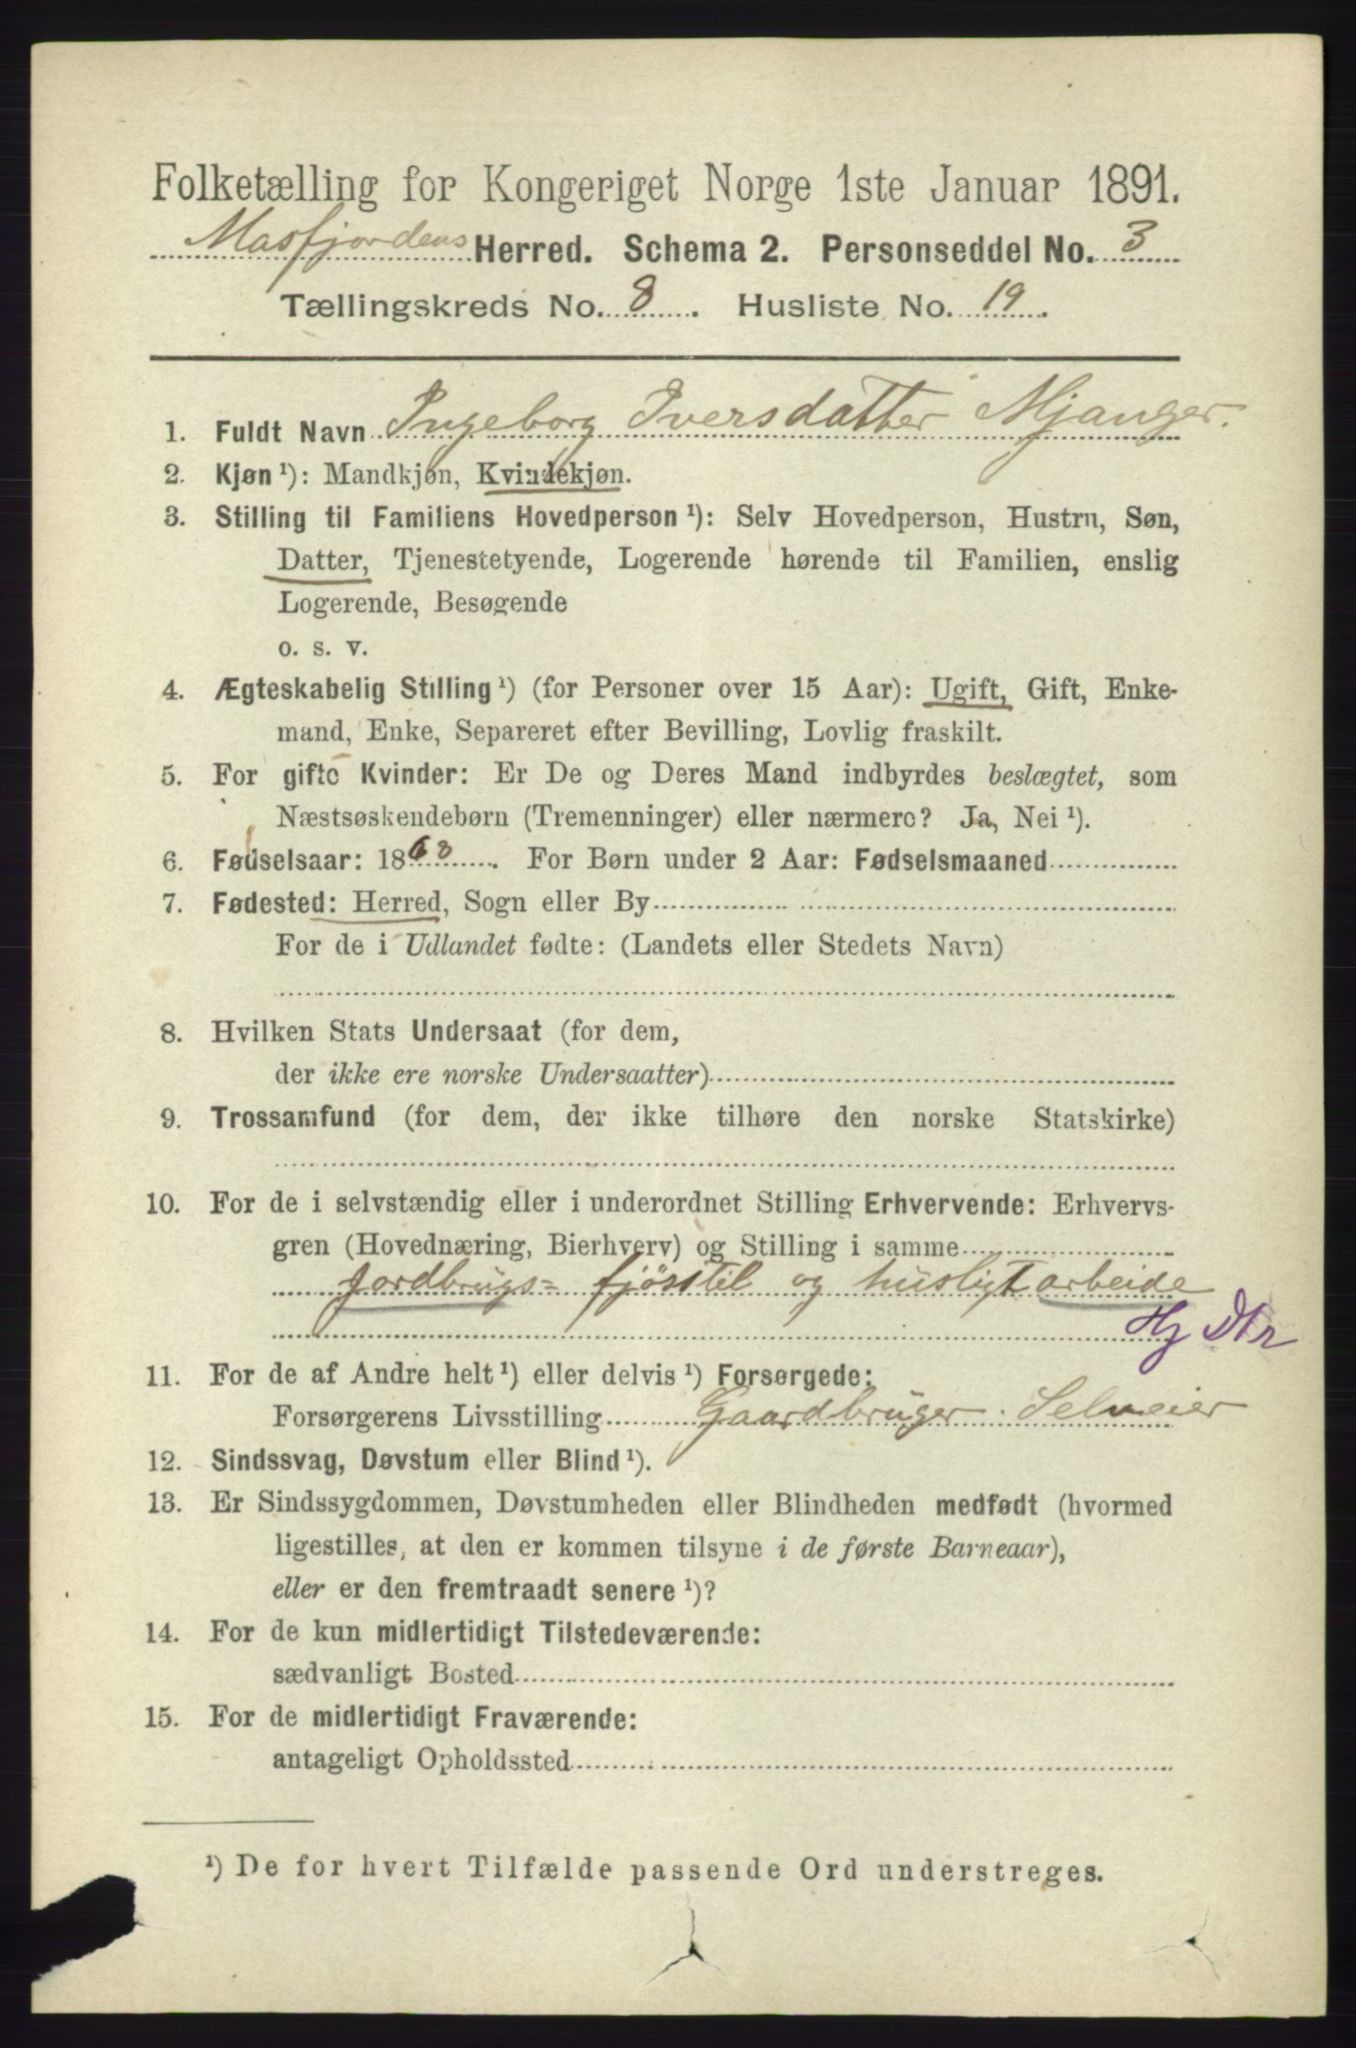 Folketælling for Kongeriget Norge 1ste Januar 1891.
Masfjordens Herred. Schema 2. Personseddel No. 3
Tællingskreds No. 8. Husliste No. 19.
1. Fuldt Navn Ingeborg Iversdatter Mjanger.
2. Kjøn ¹): Mandkjøn, Kvindekjøn.
3. Stilling til Familiens Hovedperson ¹): Selv Hovedperson, Hustru, Søn,
Datter, Tjenestetyende, Logerende hørende til Familien, enslig
Logerende, Besøgende
o. s. v.
4. Ægteskabelig Stilling ¹) (for Personer over 15 Aar): Ugift, Gift, Enke-
mand, Enke, Separeret efter Bevilling, Lovlig fraskilt.
5. For gifte Kvinder: Er De og Deres Mand indbyrdes beslægtet, som
Næstsøskendebørn (Tremenninger) eller nærmere? Ja, Nei ¹).
6. Fødselsaar: 1868. For Børn under 2 Aar: Fødselsmaaned
7. Fødested: Herred, Sogn eller By
For de i Udlandet fødte: (Landets eller Stedets Navn)
8. Hvilken Stats Undersaat (for dem,
der ikke ere norske Undersaatter)
9. Trossamfund (for dem, der ikke tilhøre den norske Statskirke)
10. For de i selvstændig eller i underordnet Stilling Erhvervende: Erhvervs-
gren (Hovednæring, Bierhverv) og Stilling i samme
Jordbrugs= fjøsstel og husligt arbeide
Hj Dtr
11. For de af Andre helt ¹) eller delvis ¹) Forsørgede:
Forsørgerens Livsstilling Gaardbruger. Selveier
12. Sindssvag, Døvstum eller Blind ¹).
13. Er Sindssygdommen, Døvstumheden eller Blindheden medfødt (hvormed
ligestilles, at den er kommen tilsyne i de første Barneaar),
eller er den fremtraadt senere ¹)?
14. For de kun midlertidigt Tilstedeværende:
sædvanligt Bosted
15. For de midlertidigt Fraværende:
antageligt Opholdssted
¹) De for hvert Tilfælde passende Ord understreges.